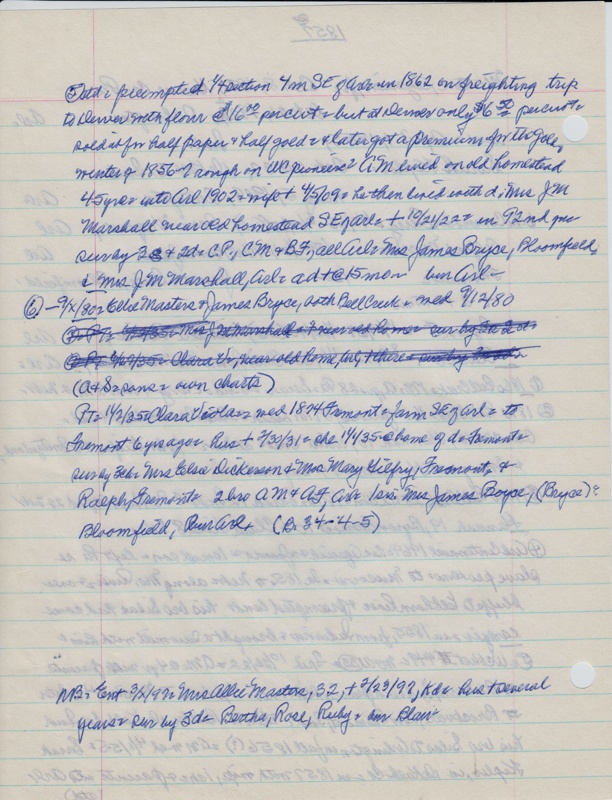 1857
⑤ Odd = preempted 1/4 section 4 m SE of Arl = in 1862 on freighting trip
to Denver with flour @ $16.00 per cwt = but at Denver only $6.50 per cwt =
sold it for half paper & half gold = & later got a premium for the gold,
winter of 1856-7 rough on WC pioneers = AM lived on old homestead
45 yrs = into Arl 1902 = wife + 4/5/09 = he then lived with d; Mrs J M
Marshall near old homestead SE of Arl = + 10/21/22 = in 92nd yr =
sur by 3s & 2d = CP, CM & BF, all Arl = Mrs James Bryce, Bloomfield,
& Mrs J M Marshall, Arl = a d + @ 15 mo = bur Arl =
⑥ - 9/x/80 = Ellie Masters & James Bryce, both Bell Creek = med 9/12/80
(A & S = sons = own charts)
PT = 1/2/35 = Clara Viola = med 1874 Fremont = farm SE of Arl = to
Fremont 6 yrs ago = hus + 7/30/31 = she 1/1/35 @ home of d = Fremont =
sur by 3ch = Mrs Elsie Dickerson & Mrs Mary Gilfry, Fremont, &
Ralph, Fremont = 2 bro AM & AF, Arl = 1 sis Mrs James Boyce, (Bryce)?
Bloomfield, Bur Arl, (B. 34-4-5)
NB = Ent 3/2/97 = Mrs Allie Masters, 32, + 2/23/97, Kd = hus + several
years = sur by 3d = Bertha, Rose, Ruby = bur Blair =